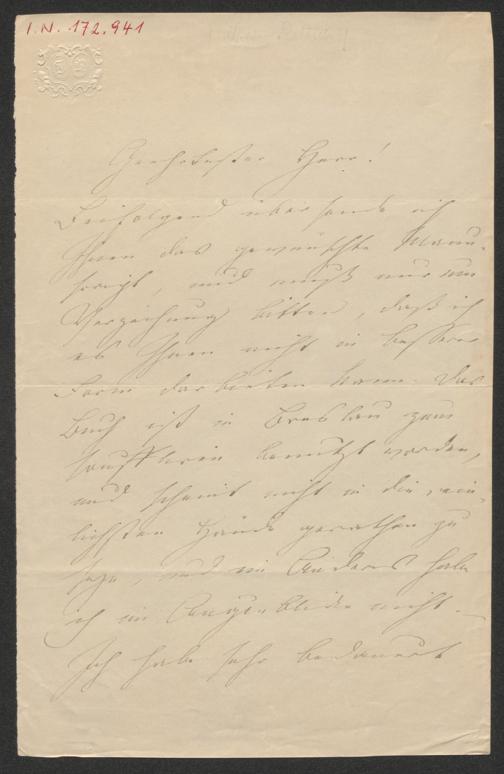 I.N. 172.941
Geehrtester Herr!
Beifolgend übersende ich
Ihnen das gewünschte Manu-
script, und muß nur um
Verzeihung bitten, daß ich
es Ihnen nicht in besserer
Form darbieten kann. Das
Buch ist in Breslau zum
soufflieren benutzt worden,
und scheint nicht in die rein-
lichsten Hände gerathen zu
sein, und ein Anderes habe
ich im Augenblicke nicht. –
Ich habe sehr bedauert